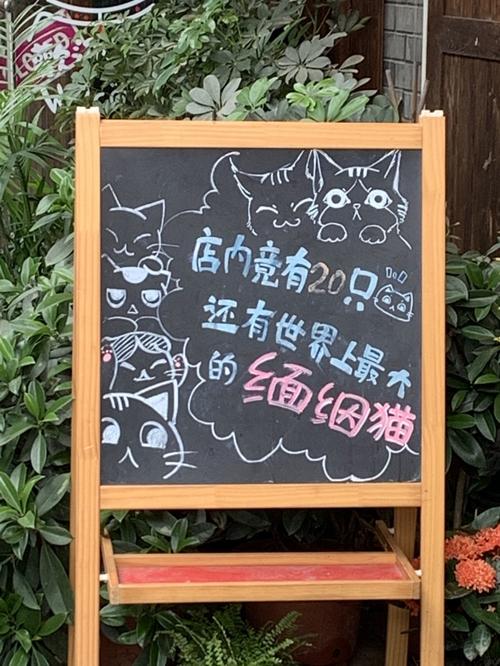 店内竟有20只
还有世界上最大
的缅因猫